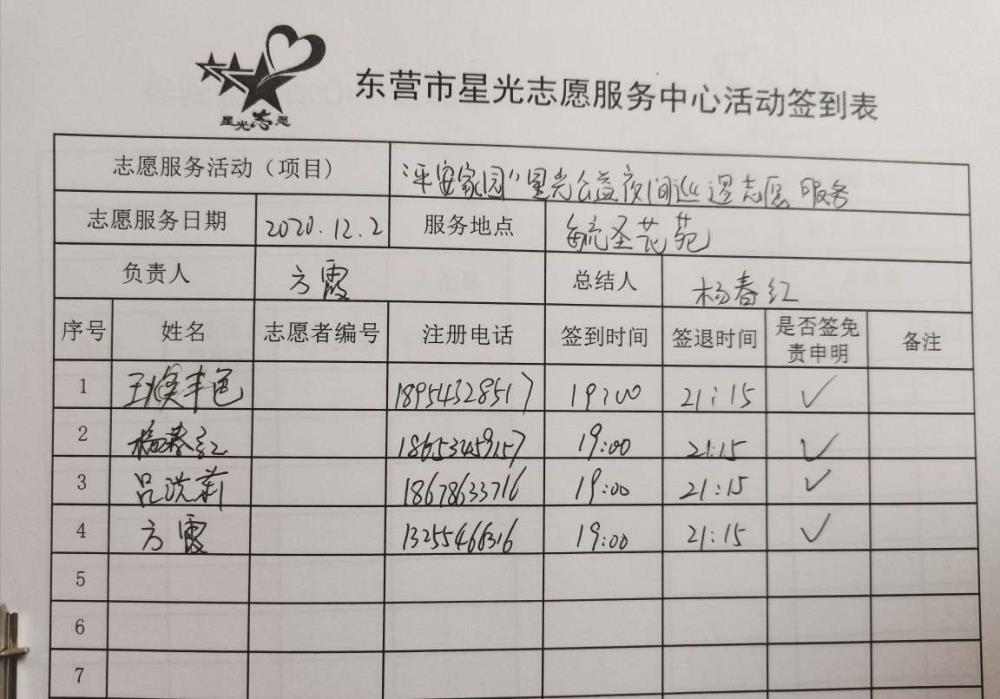 星光志愿
东营市星光志愿服务中心活动签到表
志愿服务活动（项目） “平安家园”星光公益夜间巡逻志愿服务
志愿服务日期 2020.12.2 服务地点 毓圣花苑
负责人 方霞 总结人 杨春红
序号 姓名 志愿者编号 注册电话 签到时间 签退时间 是否签免责申明 备注
1 18954328517 19:00 21:15 ✓
2 杨春红 18653459157 19:00 21:15 ✓
3 吕洪莉 18678633716 19:00 21:15 ✓
4 方霞 13255466316 19:00 21:15 ✓
5
6
7